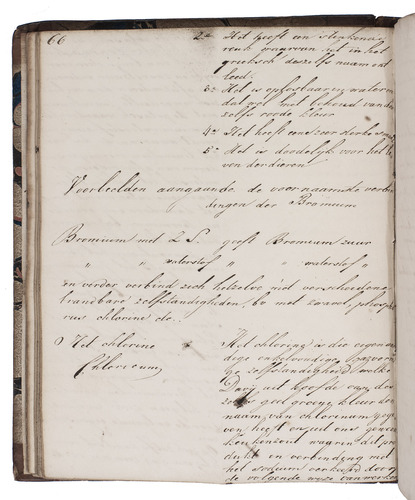 66
2e Het heeft een
reuk waarvan het in het
grieksch deszelfs naam ont
leed.
3e Het is oplosbaar in water en
dat wel met behoud van des
zelfs roode kleur
4e Het heeft eene zeer sterke
5e Het is doodelijk voor het
van der dieren
Voorbeelden aangaande de voornaamste verbin
dingen der Bromium
Bromium met Z. S. geeft Bromium zuur
" " waterstof " " waterstof "
en verder verbind zich hetzelve met verscheidene
brandbare zelfstandigheden, bv met zwavel, phosp
rus chlorine &c..
Het chlorine
Chloreum
Het chlorine is die eigenaar
dige enkelvoudige gazvormi
ge zelfstandigheid welke
Davij uit hoofde van der
zelfs geel groene kleur den
naam van chloreum gege
ven heeft en uit ons gewoon
keukenzout waarin dit pro
dukt in verbinding met
het sodium verkeerd door
de volgende wijze